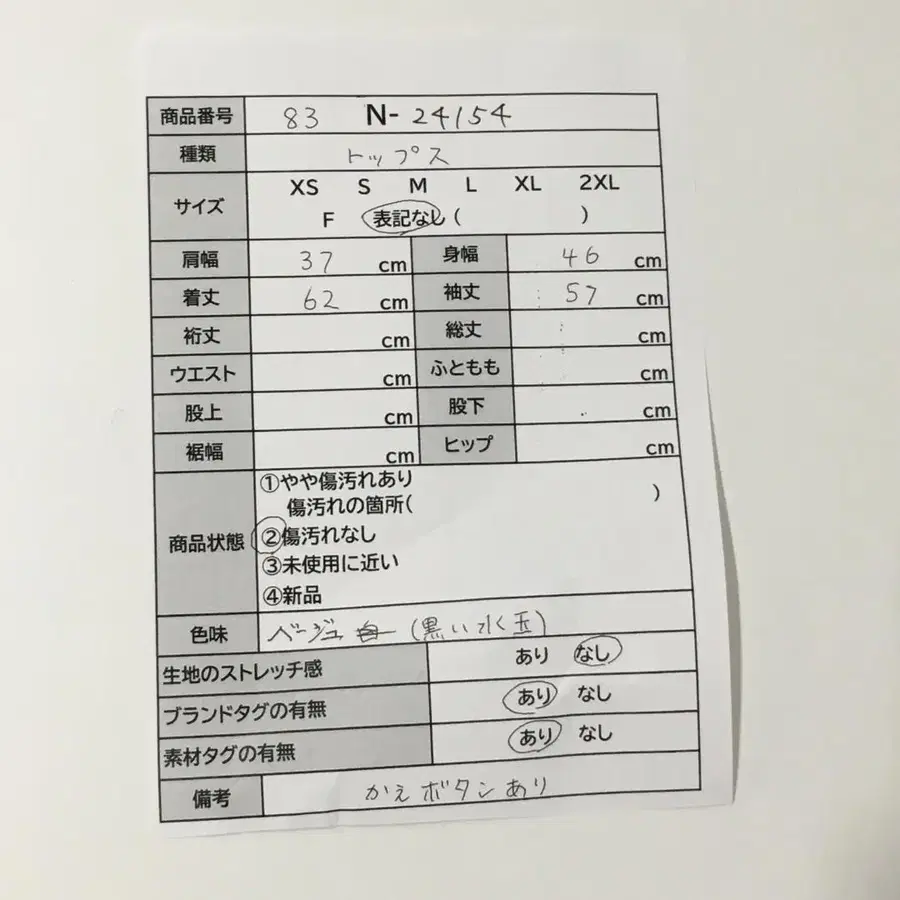 商品番号 83 N-24154
種類 トップス
サイズ XS S M L XL 2XL
F 表記なし( )
肩幅 37 cm 身幅 46 cm
着丈 62 cm 袖丈 57 cm
裄丈 cm 総丈 cm
ウエスト cm ふともも cm
股上 cm 股下 cm
裾幅 cm ヒップ cm
商品状態 ①やや傷汚れあり
傷汚れの箇所( )
②傷汚れなし
③未使用に近い
④新品
色味 ベージュ (黒い水玉)
生地のストレッチ感 あり なし
ブランドタグの有無 あり なし
素材タグの有無 あり なし
備考 かえボタンあり